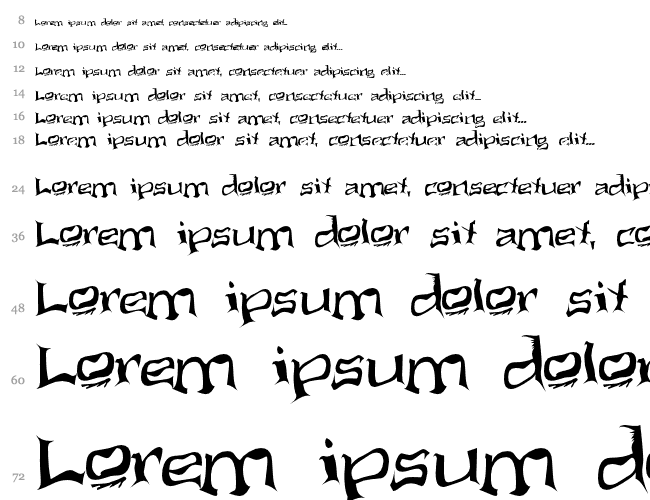 8 Lorem ipsum dolor sit amet, consectetuer adipiscing elit...
10 Lorem ipsum dolor sit amet, consectetuer adipiscing elit...
12 Lorem ipsum dolor sit amet, consectetuer adipiscing elit...
14 Lorem ipsum dolor sit amet, consectetuer adipiscing elit...
16 Lorem ipsum dolor sit amet, consectetuer adipiscing elit...
18 Lorem ipsum dolor sit amet, consectetuer adipiscing elit...
24 Lorem ipsum dolor sit amet, consectetuer adip
36 Lorem ipsum dolor sit amet, co
48 Lorem ipsum dolor sit
60 Lorem ipsum dolor
72 Lorem ipsum d